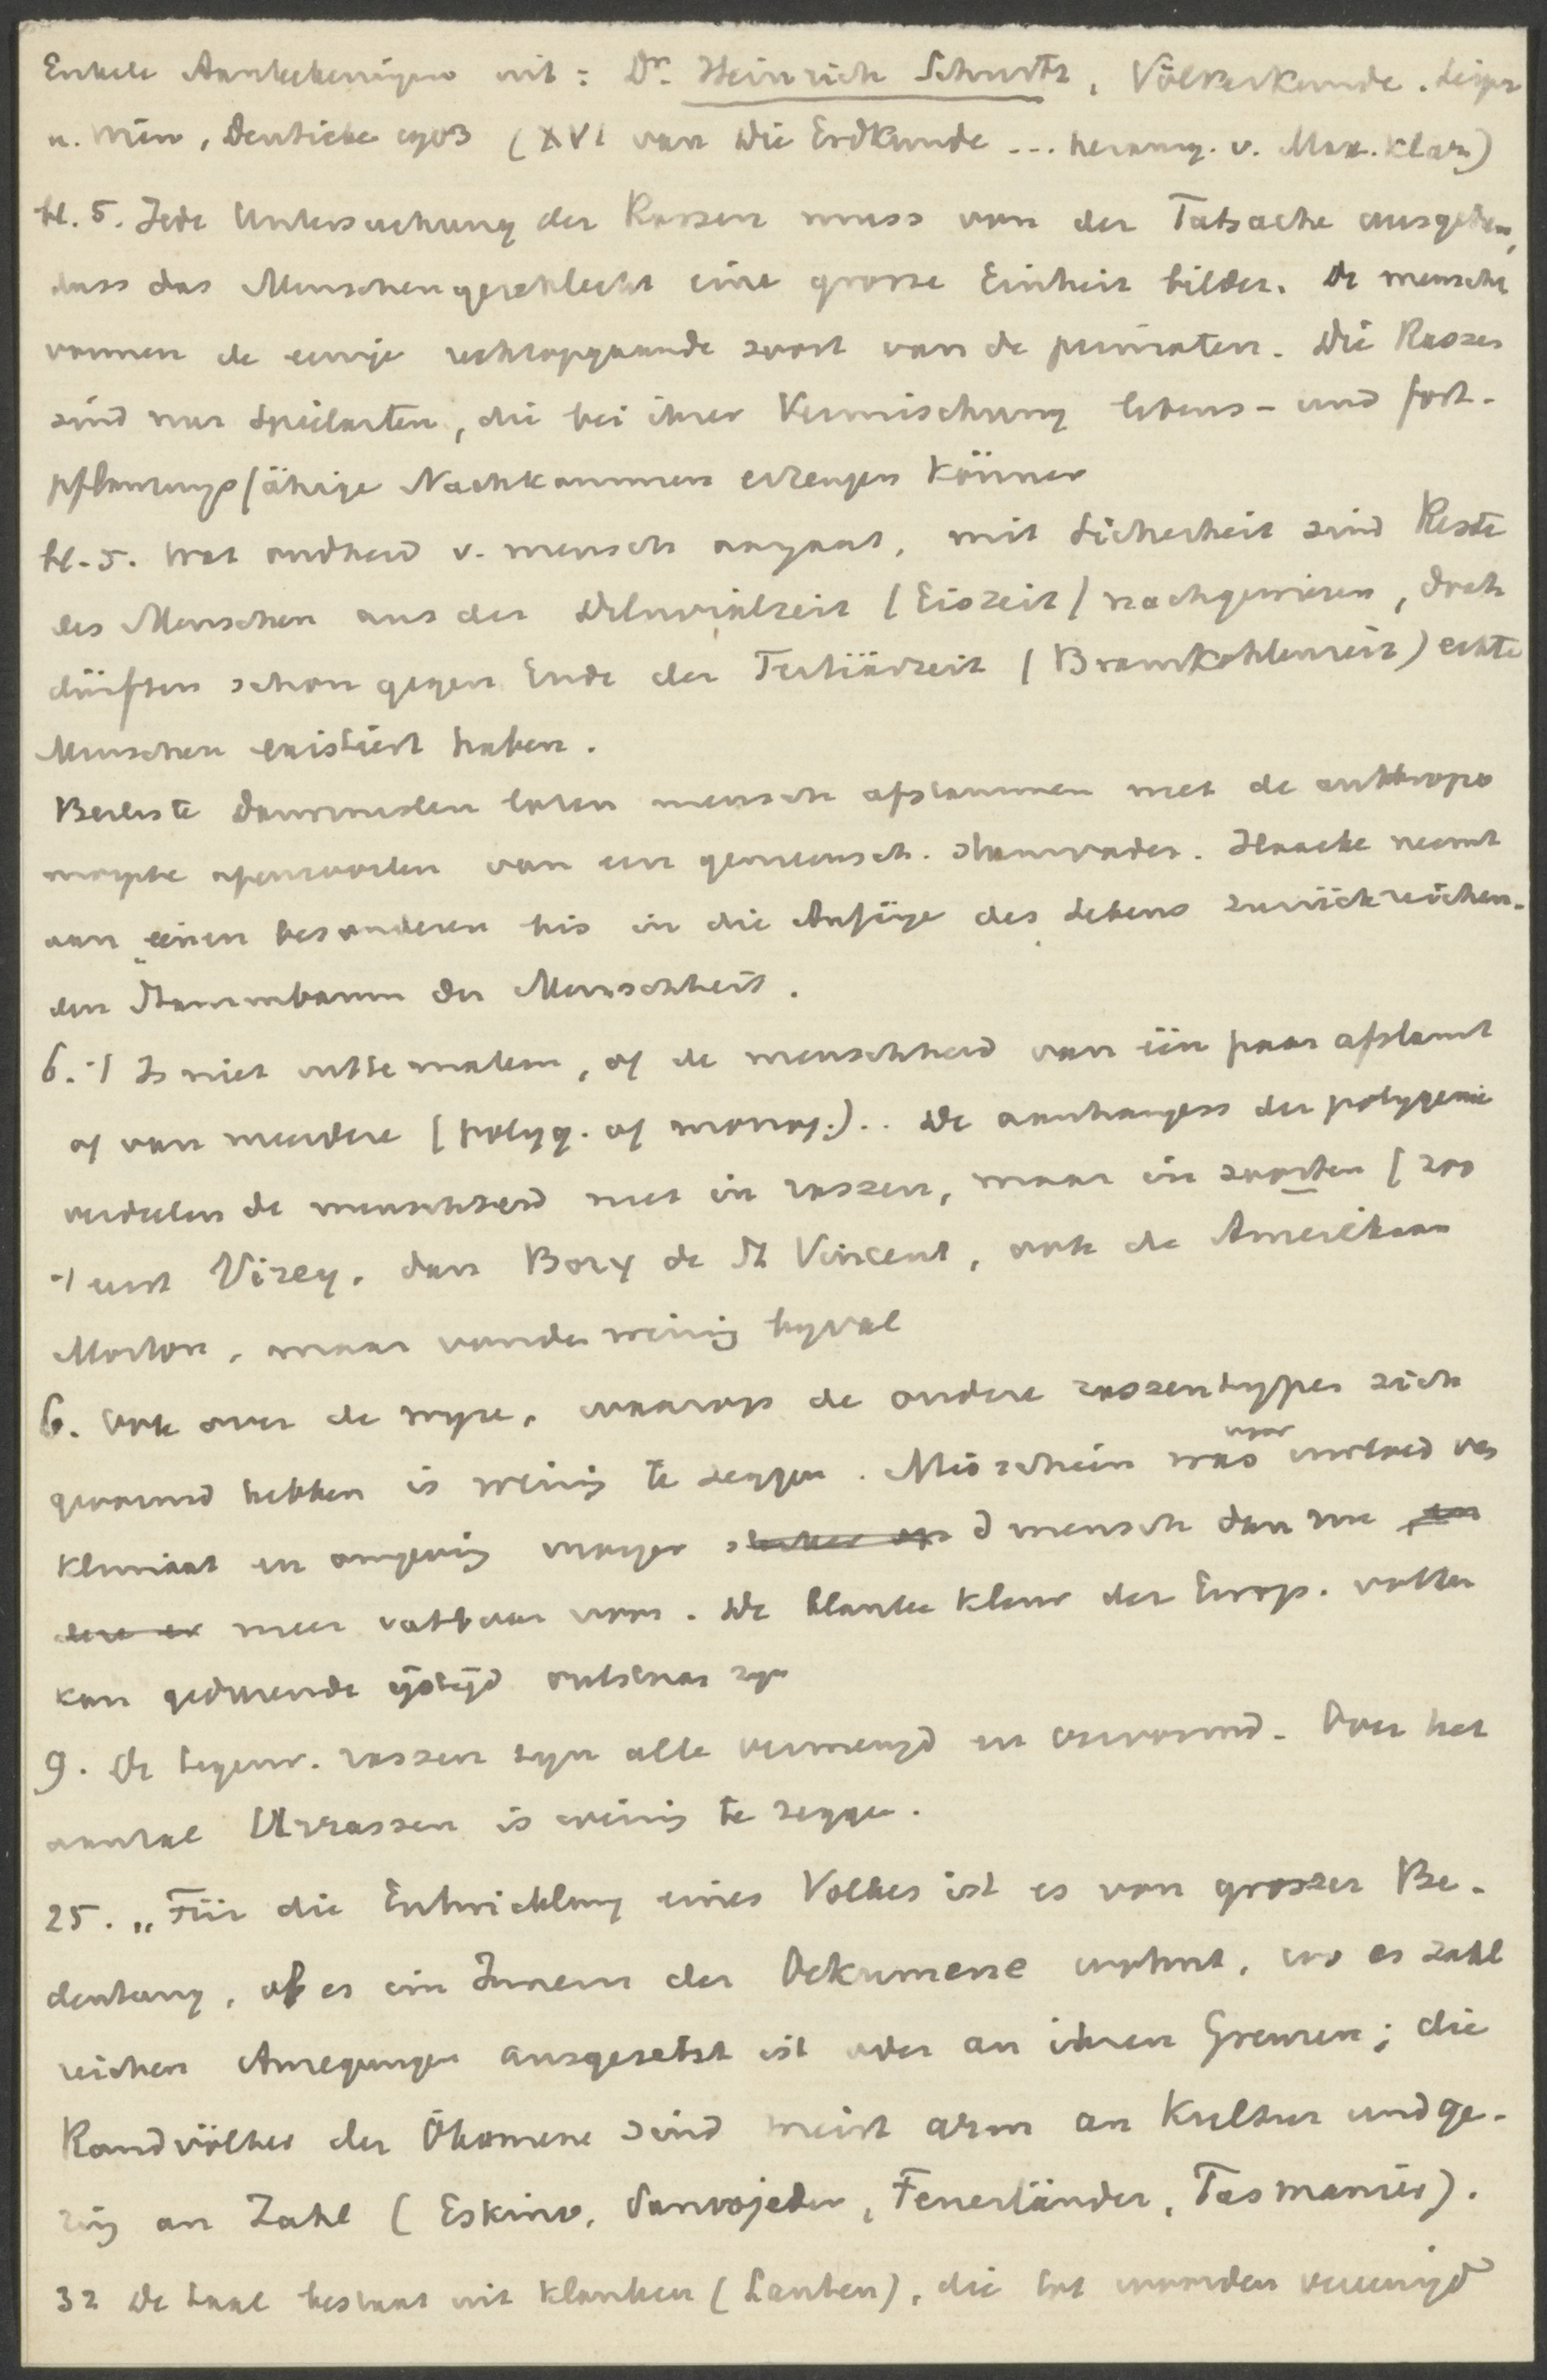 Enkele Aanteekeningen uit: Dr. Heinrich Schurtz, Völkerkunde. Leipz
u. Wien, Deuticke 1903 (XVI van Die Erdkunde ... herausg. v. Max. Klar)
bl. 5. Jede Untersuchung der Rassen muss von der Tatsache ausgehen,
dass das Menschengeschlecht eine grosse Einheit bildet. De mensche
vormen de eenige rechtopgaande soort van de primaten. Die Rassen
sind nur Spielarten, die bei ihrer Vermischung lebens- und fort-
pflanzungsfähige Nachkommen erzeugen können
bl. 5. Wat oudheid v. mensch aangaat, mit Sicherheit sind Reste
des Menschen aus der Diluvialzeit (Eiszeit) nachgewiesen, doch
dürften schon gegen Ende der Tertiärzeit (Braunkohlenzeit) echte
Menschen existiert haben.
Beslste Darwinisten laten mensch afstammen met de anthropo
morphe apensoorten van een gemeensch. stamvader. Haacke neemt
aan „einen besonderen bis in die Anfänge des Lebens zurückreichen-
den Stammbaum der Menschheit.
6. ·/ Is niet uit te maken, of de menschheid van één paar afstamt
of van meerdere (polyg. of monog.).. De aanhangers der polygenie
verdeelen de menschheid niet in rassen, maar in soorten (zoo
·/ eerst Virey, dan Bory de St Vincent, ook de Amerikaan
Morton, maar vonden weinig byval
6. Ook over de wyze, waarop de andere rassentypen zich
gevormd hebben is weinig te zeggen. Misschien was voor invloed van
klimaat en omgeving vroeger d mensch dan nu
meer vatbaar voor. De blanke kleur der Europ. volken
kan gedurende ijstijd ontstaan zyn
9. De tegenw. rassen zyn alle vermengd en vervormd. Over het
aantal Urrassen is weinig te zeggen.
25. „Für die Entwicklung eines Volkes ist es von grosser Be-
deutung, ob es im Innern der Oekumene wohnt, wo es zahl
reichen Anregungen ausgesetzt ist oder an ihren Grenzen; die
Randvölker der Ökumene sind meist arm an Kultur und ge-
ring an Zahl (Eskimo, Samojeden, Feuerländer, Tasmanier).
32 De taal bestaat uit klanken (Lauten), die tot woorden vereenigd